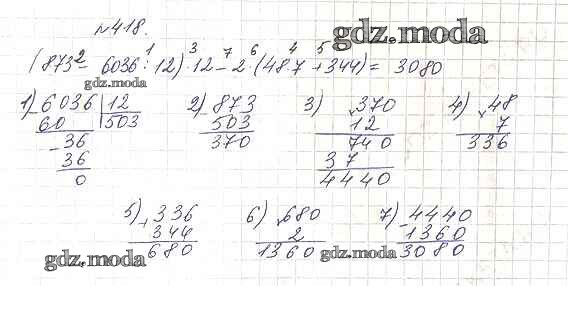 №418.
gdz.moda
1 3 7 2 6 4 5
(873 - 6036 : 12) · 12 - 2 · (48·7 + 344) = 3080
gdz.moda
1) 6036 | 12
- 60 503
- 36
36
0
2) - 873
503
370
3) × 370
12
740
37
4440
4) × 48
7
336
5) + 336
344
680
6) × 680
2
1360
7) - 4440
1360
3080
gdz.moda
gdz.moda